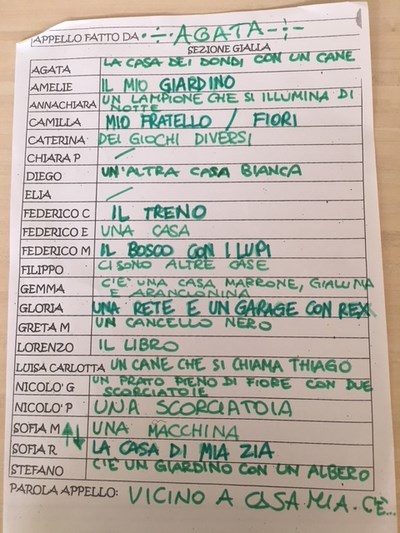 APPELLO FATTO DA AGATA
SEZIONE GIALLA
AGATA LA CASA DEI DONDI CON UN CANE
AMELIE IL MIO GIARDINO
ANNACHIARA UN LAMPIONE CHE SI ILLUMINA DI
NOTTE
CAMILLA MIO FRATELLO / FIORI
CATERINA DEI GIOCHI DIVERSI
CHIARA P /
DIEGO UN'ALTRA CASA BIANCA
ELIA /
FEDERICO C IL TRENO
FEDERICO E UNA CASA
FEDERICO M IL BOSCO CON I LUPI
FILIPPO CI SONO ALTRE CASE
GEMMA C'È UNA CASA MARRONE, GIALLINA
E ARANCIONINA
GLORIA UNA RETE E UN GARAGE CON REX
GRETA M UN CANCELLO NERO
LORENZO IL LIBRO
LUISA CARLOTTA UN CANE CHE SI CHIAMA THIAGO
NICOLO' G UN PRATO PIENO DI FIORE CON DUE
SCORCIATOIE
NICOLO' P UNA SCORCIATOIA
SOFIA M UNA MACCHINA
SOFIA R LA CASA DI MIA ZIA
STEFANO C'È UN GIARDINO CON UN ALBERO
PAROLA APPELLO: VICINO A CASA MIA C'È...